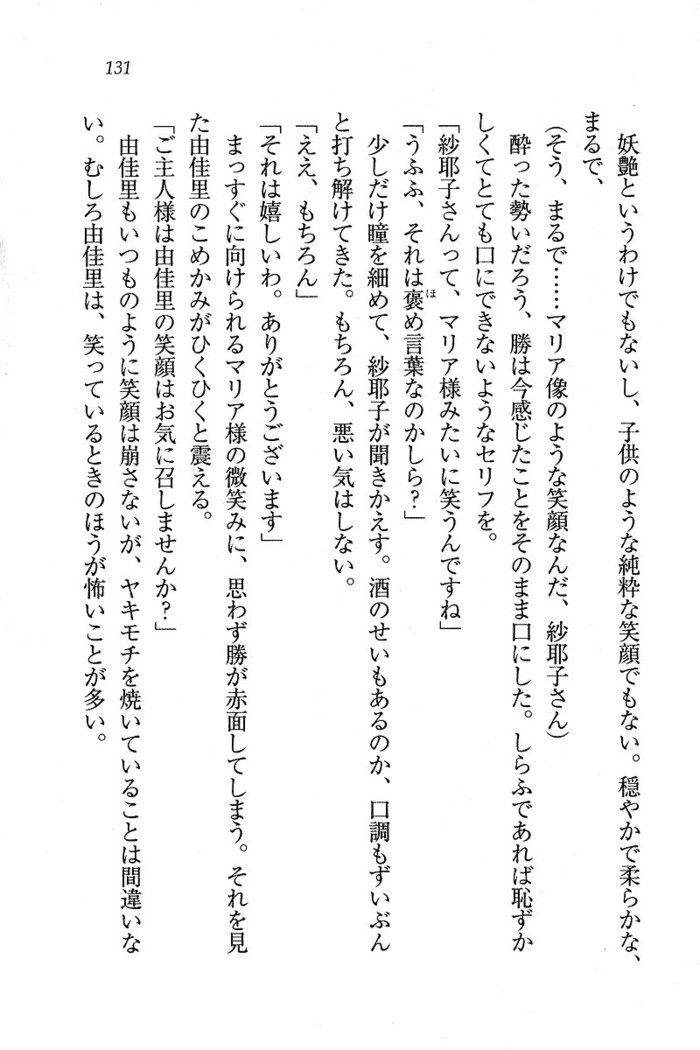 131
妖艶というわけでもないし、子供のような純粋な笑顔でもない。穏やかで柔らかな、
まるで、
(そう、まるで……マリア像のような笑顔なんだ、紗耶子さん)
酔った勢いだろう、勝は今感じたことをそのまま口にした。しらふであれば恥ずか
しくてとても口にできないようなセリフを。
「紗耶子さんって、マリア様みたいに笑うんですね」
「うふふ、それは褒め言葉なのかしら?」
ほ
少しだけ瞳を細めて、紗耶子が聞きかえす。酒のせいもあるのか、口調もずいぶん
と打ち解けてきた。もちろん、悪い気はしない。
「ええ、もちろん」
「それは嬉しいわ。ありがとうございます」
まっすぐに向けられるマリア様の微笑みに、思わず勝が赤面してしまう。それを見
た由佳里のこめかみがひくひくと震える。
「ご主人様は由佳里の笑顔はお気に召しませんか?」
由佳里もいつものように笑顔は崩さないが、ヤキモチを焼いていることは間違いな
い。むしろ由佳里は、笑っているときのほうが怖いことが多い。